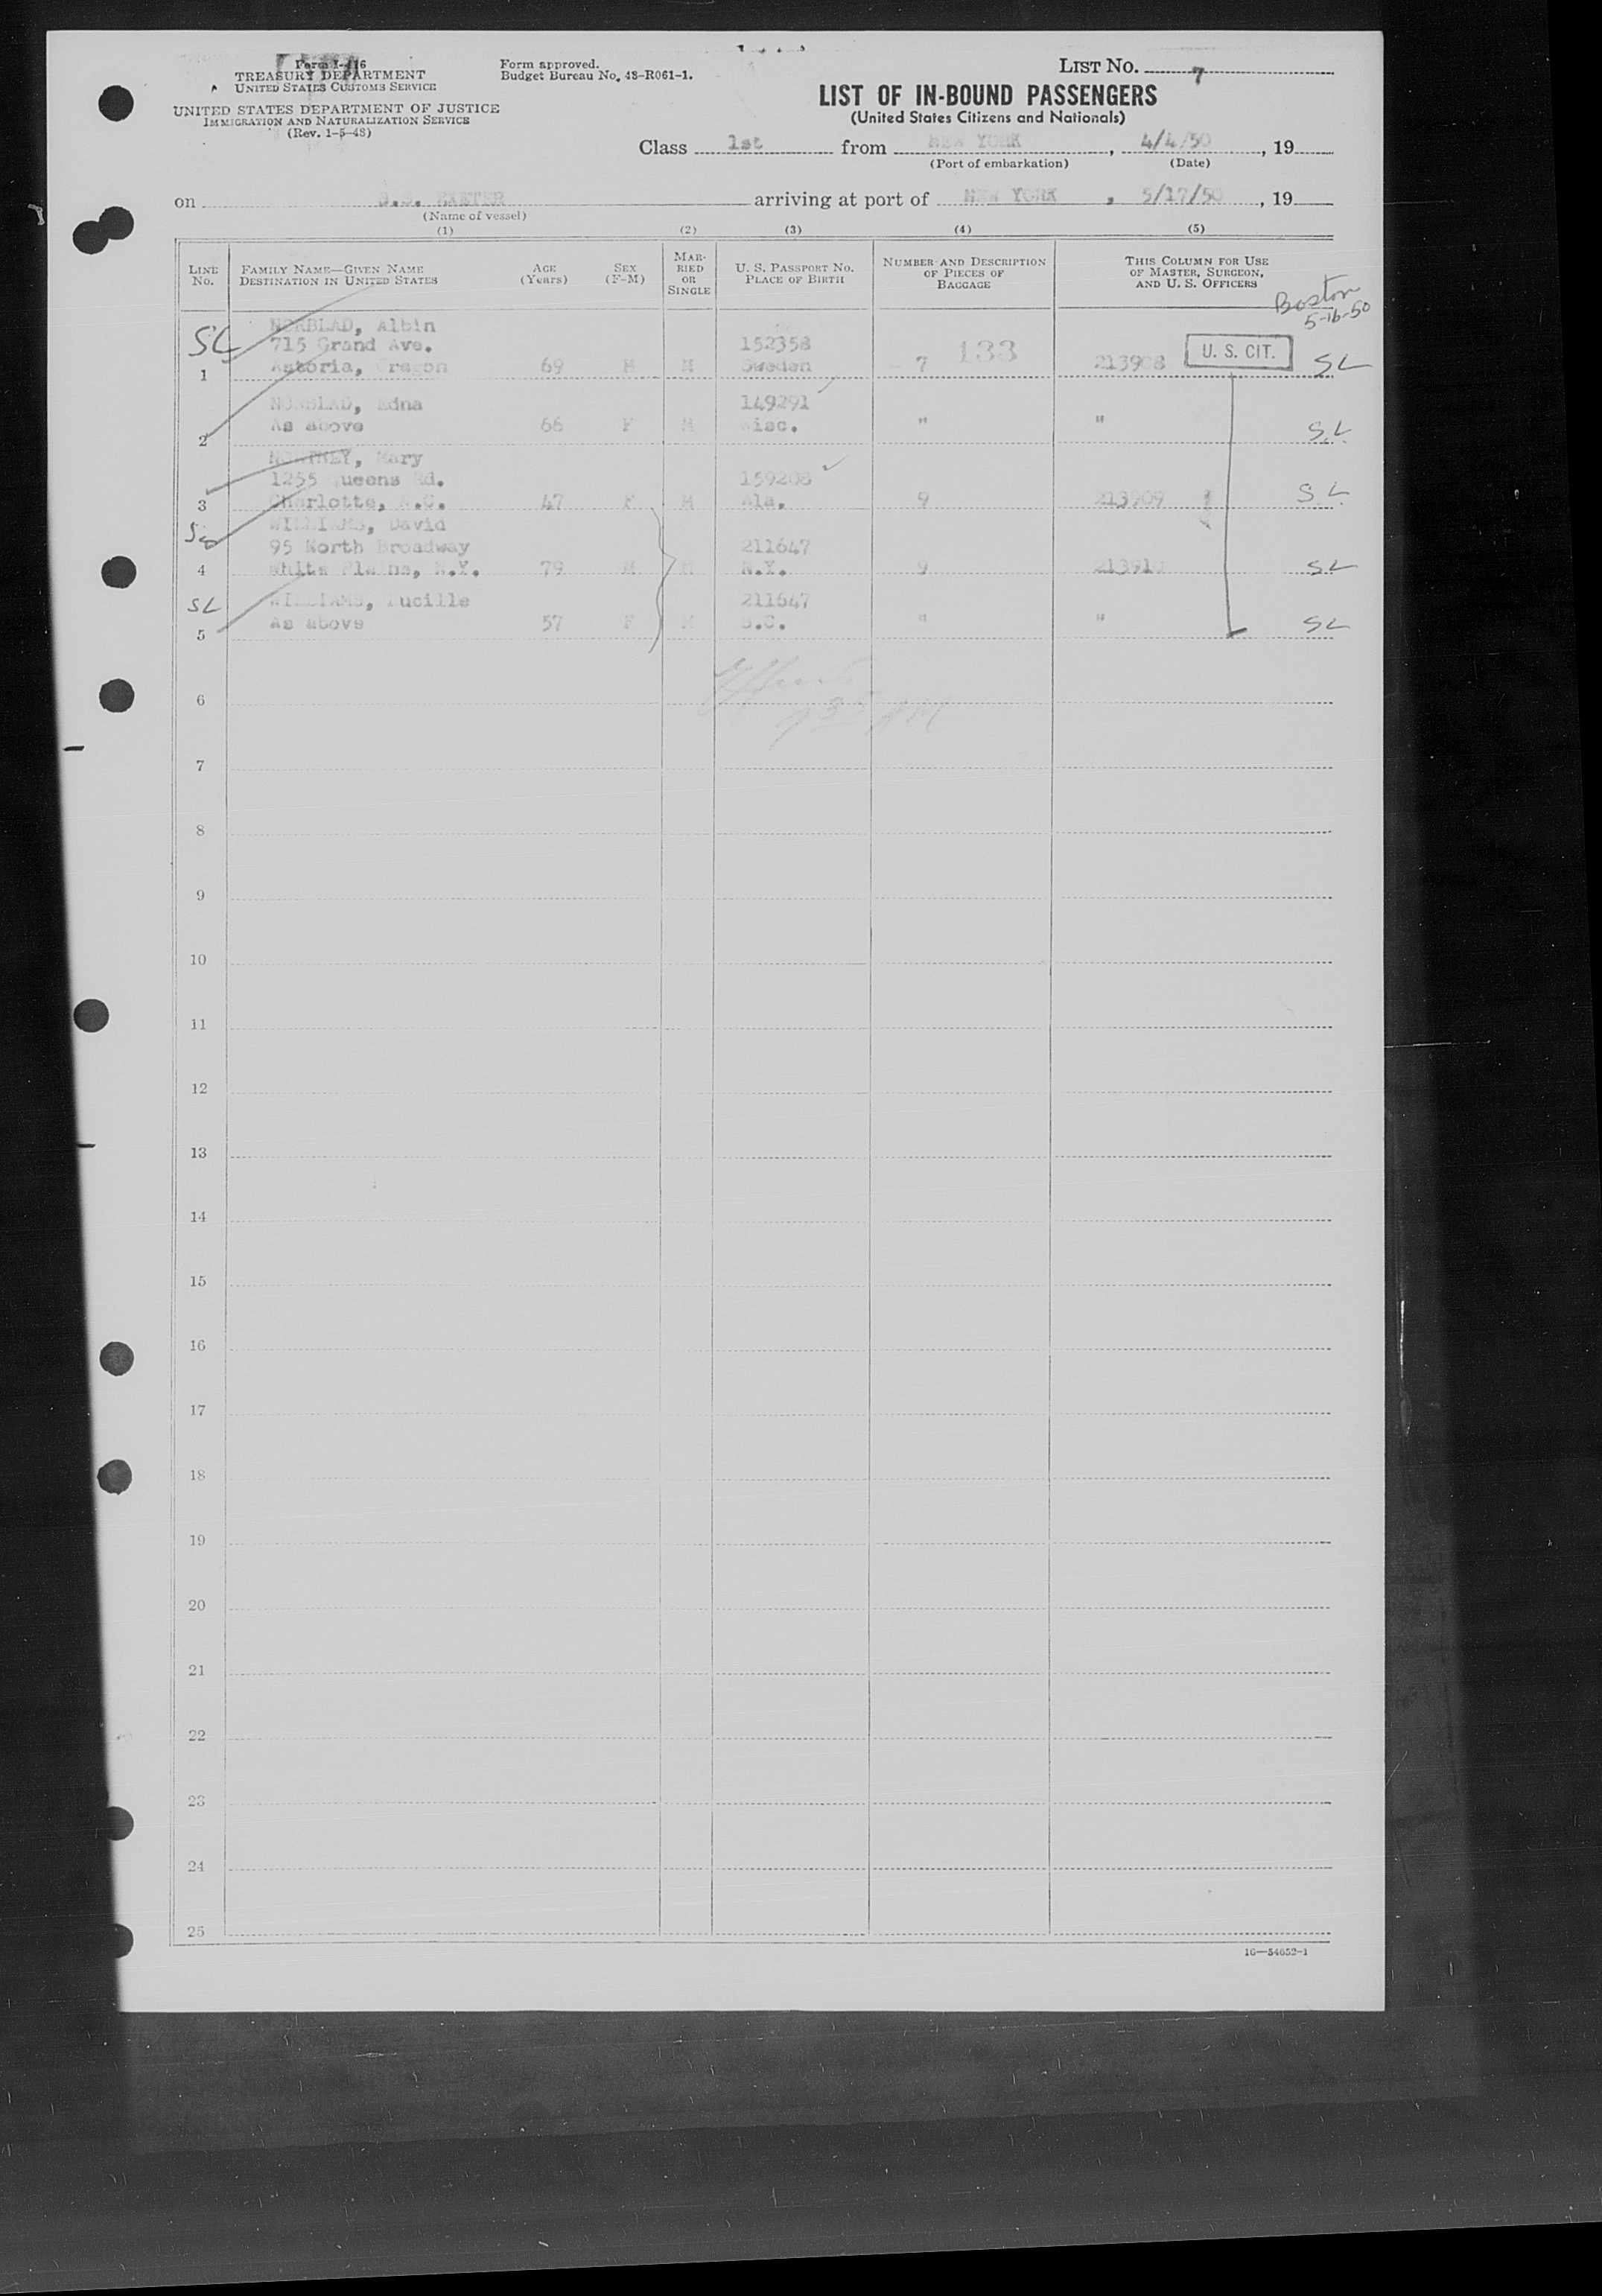 Form I-416
TREASURY DEPARTMENT
UNITED STATES CUSTOMS SERVICE
UNITED STATES DEPARTMENT OF JUSTICE
IMMIGRATION AND NATURALIZATION SERVICE
(Rev. 1-5-48)
Form approved.
Budget Bureau No. 48-R061-1.
LIST No. 7
LIST OF IN-BOUND PASSENGERS
(United States Citizens and Nationals)
Class 1st from NEW YORK, 4/4/50, 19
(Port of embarkation) (Date)
on S.S. EXETER arriving at port of NEW YORK, 5/17/50, 19
(Name of vessel)
(1) (2) (3) (4) (5)
LINE No. FAMILY NAME—GIVEN NAME DESTINATION IN UNITED STATES AGE (Years) SEX (F-M) MARRIED OR SINGLE U. S. PASSPORT No. PLACE OF BIRTH NUMBER AND DESCRIPTION OF PIECES OF BAGGAGE THIS COLUMN FOR USE OF MASTER, SURGEON, AND U. S. OFFICERS
Boston
5-16-50
NORBLAD, Albin
SL 715 Grand Ave. 152358 133 U. S. CIT.
1 Astoria, Oregon 69 M M Sweden 7 213908 SL
NORBLAD, Edna 149291
2 As above 66 F M Wisc. " " SL
Mary
1255 Queens Rd. 159208
3 Charlotte, N.C. 47 F M Ala. 9 213909 SL
WILLIAMS, David
95 North Broadway 211647
4 White Plains, N.Y. 79 M M N.Y. 9 213910 SL
SL WILLIAMS, Lucille 211647
5 As above 57 F M S.C. " " SL
6
7
8
9
10
11
12
13
14
15
16
17
18
19
20
21
22
23
24
25
16—54652-1